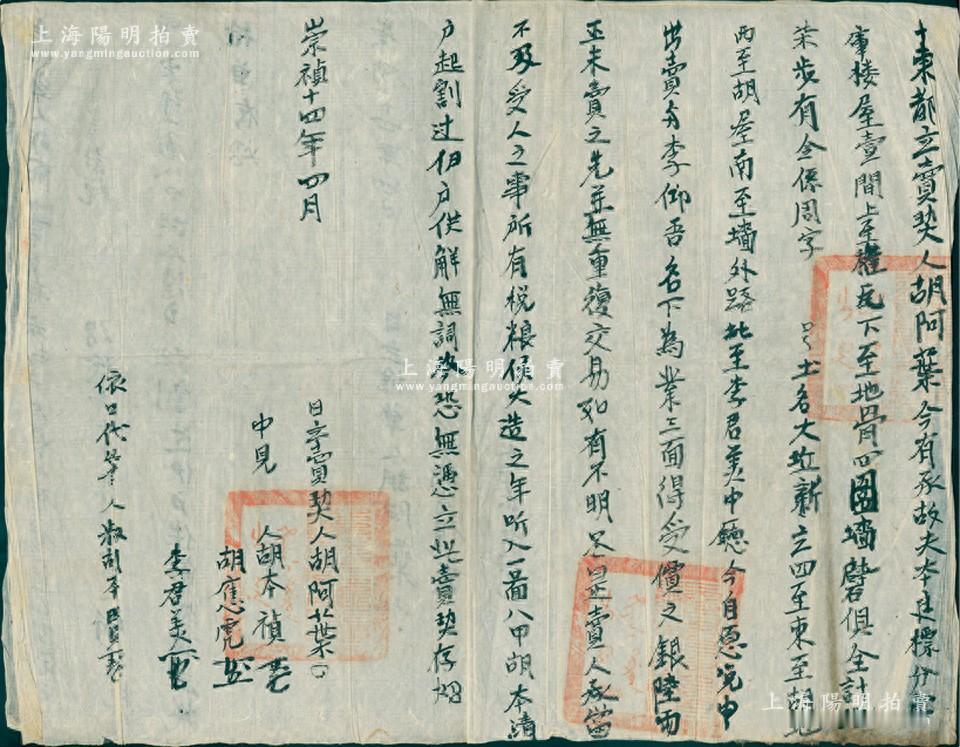 十東都立賣契人胡阿葉今有承故夫本
樓屋壹間上至椽瓦下至地骨四圍墻磚俱全計
柒步有全係周字 號土名大坵新立四至東至
西至胡屋南至墻外路北至李君美中廳今自愿浼中
出賣与李仰吾名下為業三面得受價文銀陸兩
正未賣之先並無重復交易如有不明足是賣人承當
不及受人之事所有税粮候大造之年听入一啚八甲胡本清
户起割过伯户供解無詞今恐無憑立此賣契存炤
崇禎十四年四月
日立賣契人胡阿葉
中見人胡本禎
胡應虎
李君美
依口代筆人
上海陽明拍賣
www.yangmingauction.com
上海陽明拍賣
www.yangmingauction.com
上海陽明拍賣
www.yangmingauction.com